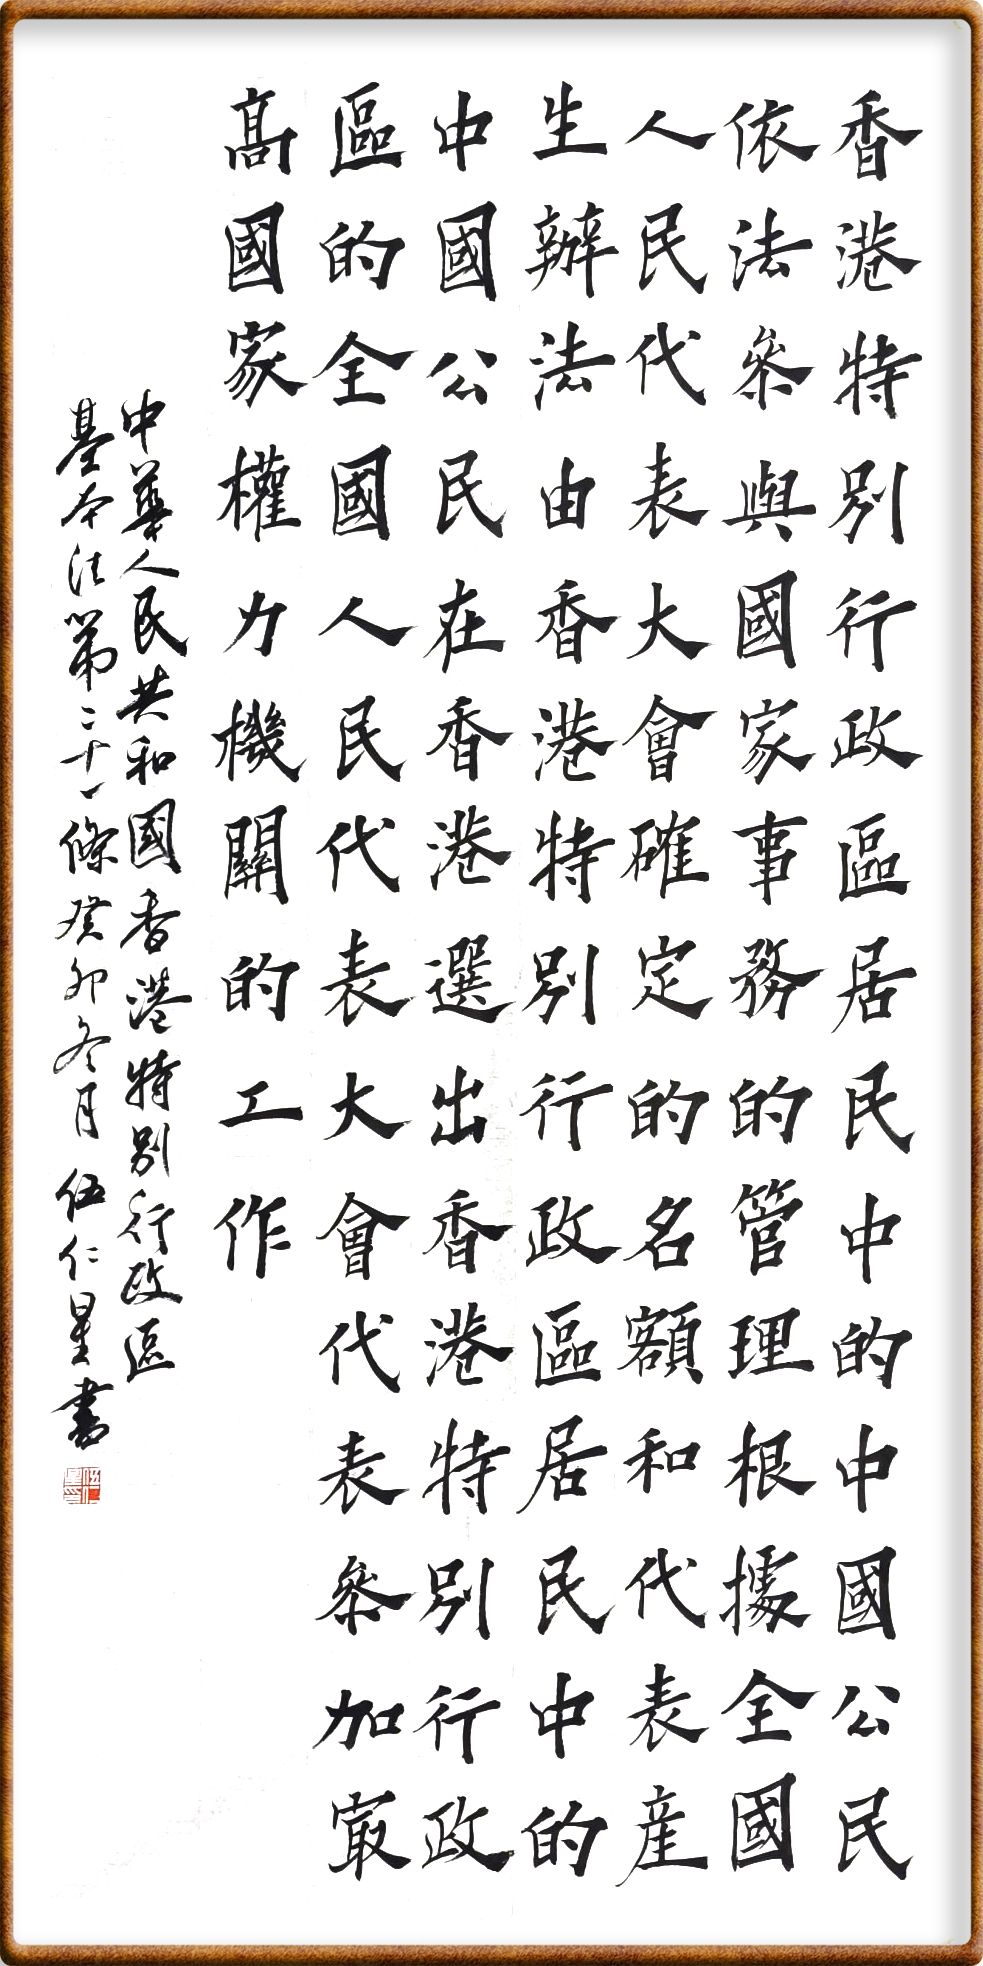 香港特別行政區居民中的中國公民
依法參與國家事務的管理根據全國
人民代表大會確定的名額和代表產
生辦法由香港特別行政區居民中的
中國公民在香港選出香港特別行政
區的全國人民代表大會代表參加冣
高國家權力機關的工作
中華人民共和國香港特別行政區
基本法第二十一條癸卯冬月伍仁星書